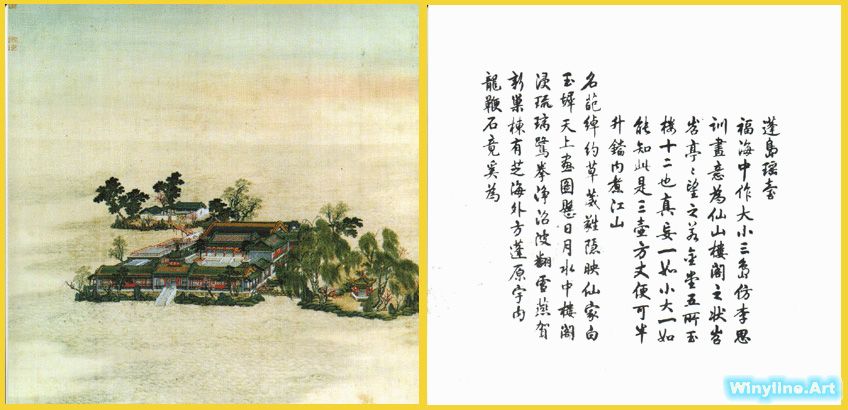 蓬島瑶臺
福海中作大小三島仿李思
訓畫意為仙山樓閣之狀岧
岧亭々望之若金堂五所玉
樓十二也真妄一如小大一如
能知此是三壺方丈便可半
升鐺內煮江山
名葩綽約草葳蕤隱映仙家白
玉墀天上畫圖懸日月水中樓閣
浸琉璃鷺拳淨沼波翻雪燕賀
新巢棟有芝海外方蓬原宇內
龍鞭石竟奚為
Winyline.Art